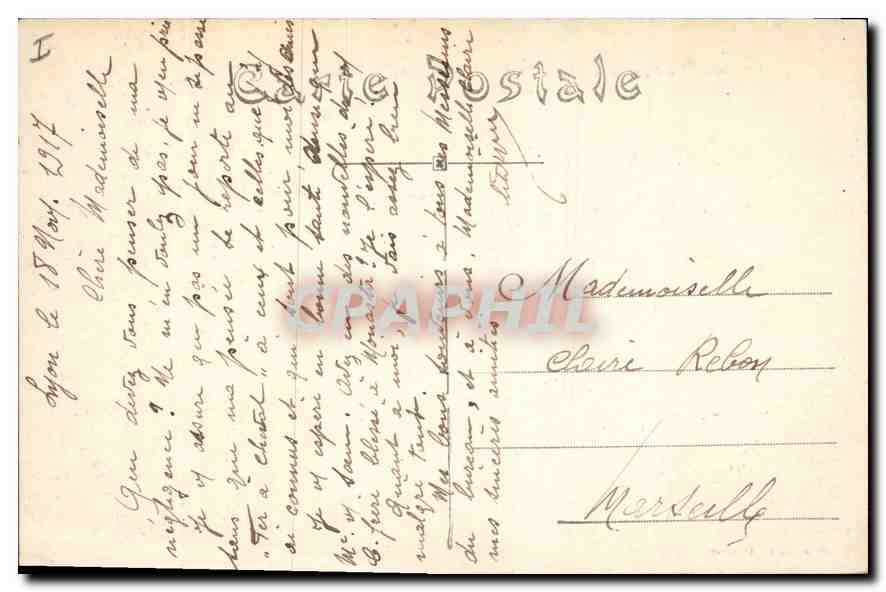 I
Carte Postale
Lyon le 18 Nov. 1917
Chère Mademoiselle
Qu'en direz vous penser de ma
négligence? Ne m'en voulez pas, je vs en prie
Je vs assure qu'il pas un jour ne se passe
sans que ma pensée se reporte au
"Fer à cheval" à ceux et celles que j'y
ai connus et qui sont pour moi des amis
Je vs espère en bonne santé, ainsi que
Mr. vs. Avez vs. des nouvelles de vs
frère blessé à Monastir? Je l'espère!
Quant à moi, je vais assez bien
malgré tout.
Mes bons souvenirs à tous ces Messieurs
du bureau, et à vous, Mademoiselle Claire
mes sincères amitiés
CPAPHIL
Mademoiselle
Claire Rebon
Marseille